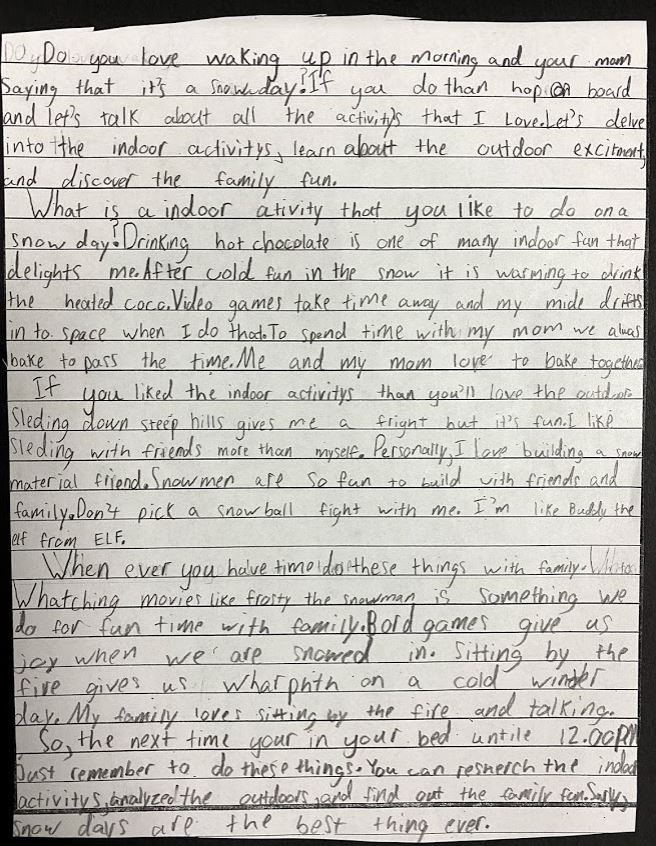 Do you love waking up in the morning and your mom
Saying that it's a snowday? If you do than hop on board
and let's talk about all the activity's that I love. Let's delve
into the indoor activitys, learn about the outdoor excitment,
and discover the family fun.
What is a indoor ativity that you like to do on a
snow day? Drinking hot chocolate is one of many indoor fun that
delights me. After cold fun in the snow it is warming to drink
the heated coco. Video games take time away and my mide drifts
in to space when I do that. To spend time with my mom we alwas
bake to pass the time. Me and my mom love to bake together
If you liked the indoor activitys than you'll love the outdoor.
Sleding down steep hills gives me a fright but it's fun. I like
sleding with friends more than myself. Personally, I love building a snow
material friend. Snowmen are so fun to build with friends and
family. Don't pick a snowball fight with me. I'm like Buddy the
elf from ELF.
When ever you have time do these things with family.
Whatching movies like frosty the snowman is something we
do for fun time with family. Bord games give us
joy when we are snowed in. Sitting by the
fire gives us wharphth on a cold winter
day. My family loves sitting by the fire and talking.
So, the next time your in your bed untile 12.00PM
Just remember to do these things. You can reserch the indoor
activitys, analyzed the outdoors, and find out the family fun.
snow days are the best thing ever.